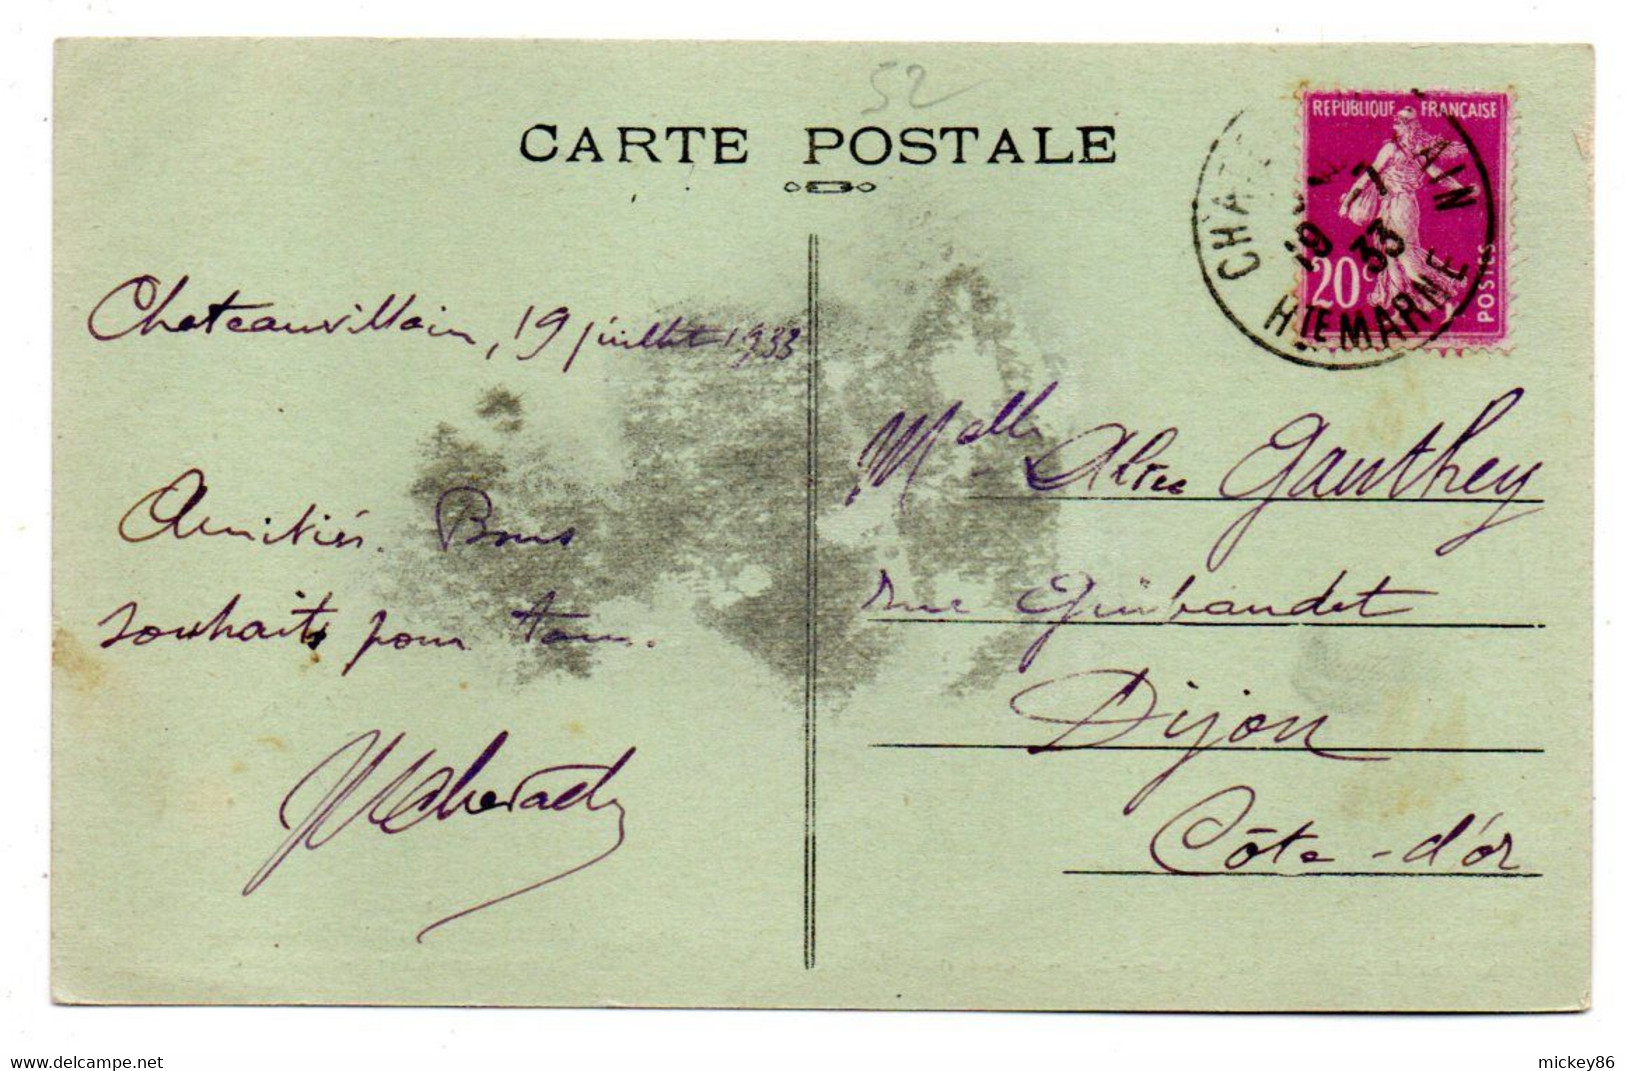 52
CARTE POSTALE
REPUBLIQUE FRANÇAISE
20c
POSTES
19 -7
33
HTE MARNE
Chateauvillain, 19 juillet 1933
Amitiés. Bons
souhaits pour tous.
Melle Alice Gauthey
rue Guibaudet
Dijon
Côte-d'or
www.delcampe.net
mickey86